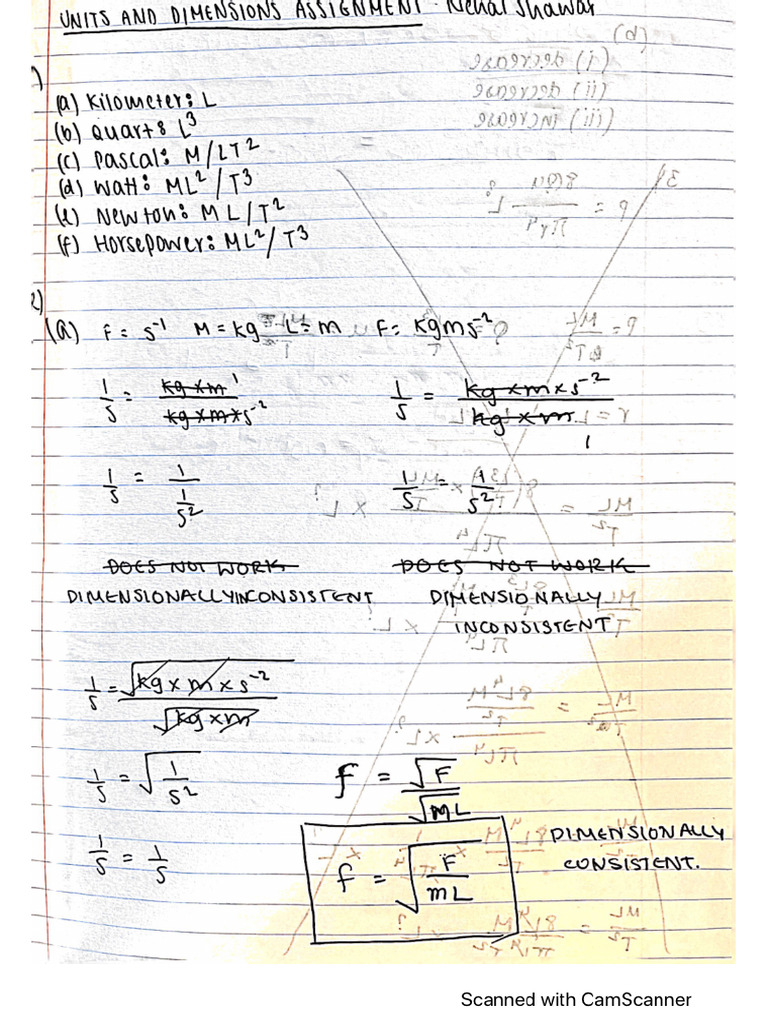 UNITS AND DIMENSIONS ASSIGNMENT - Nehal Jhawar
1)
(a) Kilometer: L
(b) Quart: L³
(c) Pascal: M/LT²
(d) Watt: ML²/T³
(e) Newton: ML/T²
(f) Horsepower: ML²/T³
2)
(a) F = s⁻¹ M = kg L = m F = kgms⁻²
1/s = kg×m 1 / kg×m×s⁻² 1/s = kg×m×s⁻² / kg×m 1
1/s = 1 / 1/s² 1/s = 1/s²
DOES NOT WORK DOES NOT WORK
DIMENSIONALLY INCONSISTENT DIMENSIONALLY
INCONSISTENT
1/s = √kg×m×s⁻² / √kg×m
1/s = √1/s² f = √F / √ML
1/s = 1/s f = √F/mL DIMENSIONALLY
CONSISTENT.
Scanned with CamScanner